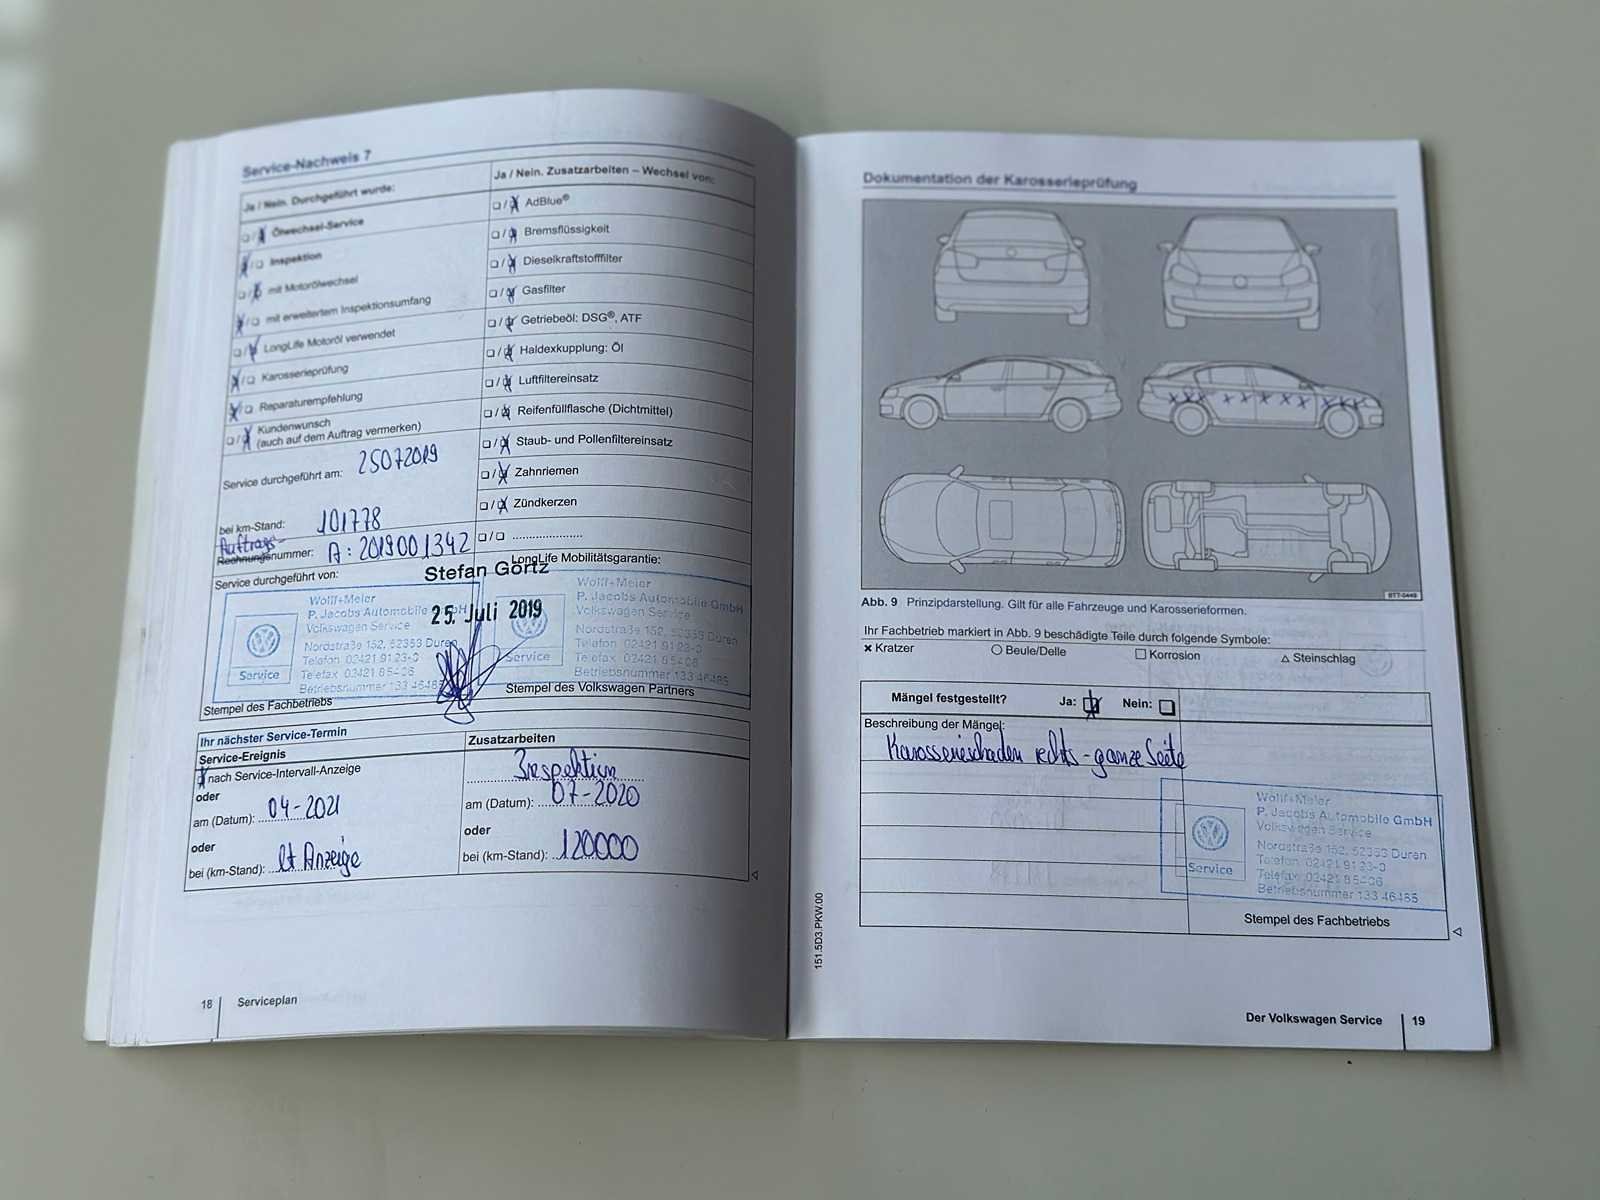 Service-Nachweis 7
Ja / Nein. Durchgeführt wurde:
Ölwechsel-Service
Inspektion
mit Motorölwechsel
mit erweitertem Inspektionsumfang
LongLife Motoröl verwendet
Karosserieprüfung
Reparaturempfehlung
Kundenwunsch
(auch auf dem Auftrag vermerken)
Service durchgeführt am: 25072019
bei km-Stand: 101778
Auftrags-
Rechnungsnummer: A: 2019001342
Ja / Nein. Zusatzarbeiten – Wechsel von:
AdBlue®
Bremsflüssigkeit
Dieselkraftstofffilter
Gasfilter
Getriebeöl: DSG®, ATF
Haldexkupplung: Öl
Luftfiltereinsatz
Reifenfüllflasche (Dichtmittel)
Staub- und Pollenfiltereinsatz
Zahnriemen
Zündkerzen
Service durchgeführt von:
LongLife Mobilitätsgarantie:
Stefan Görtz
25. Juli 2019
Wolff+Meier
P. Jacobs Automobile GmbH
Volkswagen Service
Nordstraße 152, 52353 Düren
Telefon 02421 9123-0
Telefax 02421 85406
Betriebsnummer 133 46485
Service
Wolff+Meier
P. Jacobs Automobile GmbH
Volkswagen Service
Nordstraße 152, 52353 Düren
Telefon 02421 9123-0
Telefax 02421 85406
Betriebsnummer 133 46485
Service
Stempel des Fachbetriebs
Stempel des Volkswagen Partners
Ihr nächster Service-Termin
Service-Ereignis
nach Service-Intervall-Anzeige
oder
am (Datum): 04-2021
oder
bei (km-Stand): lt Anzeige
Zusatzarbeiten
Inspektion
am (Datum): 07-2020
oder
bei (km-Stand): 120000
18 Serviceplan
Dokumentation der Karosserieprüfung
BTT-0449
Abb. 9 Prinzipdarstellung. Gilt für alle Fahrzeuge und Karosserieformen.
Ihr Fachbetrieb markiert in Abb. 9 beschädigte Teile durch folgende Symbole:
× Kratzer ○ Beule/Delle □ Korrosion △ Steinschlag
Mängel festgestellt? Ja: Nein:
Beschreibung der Mängel:
Karosserieschaden rechts - ganze Seite
Wolff+Meier
P. Jacobs Automobile GmbH
Volkswagen Service
Nordstraße 152, 52353 Düren
Telefon 02421 9123-0
Telefax 02421 85406
Betriebsnummer 133 46485
Service
Stempel des Fachbetriebs
151.5D3.PKW.00
Der Volkswagen Service 19